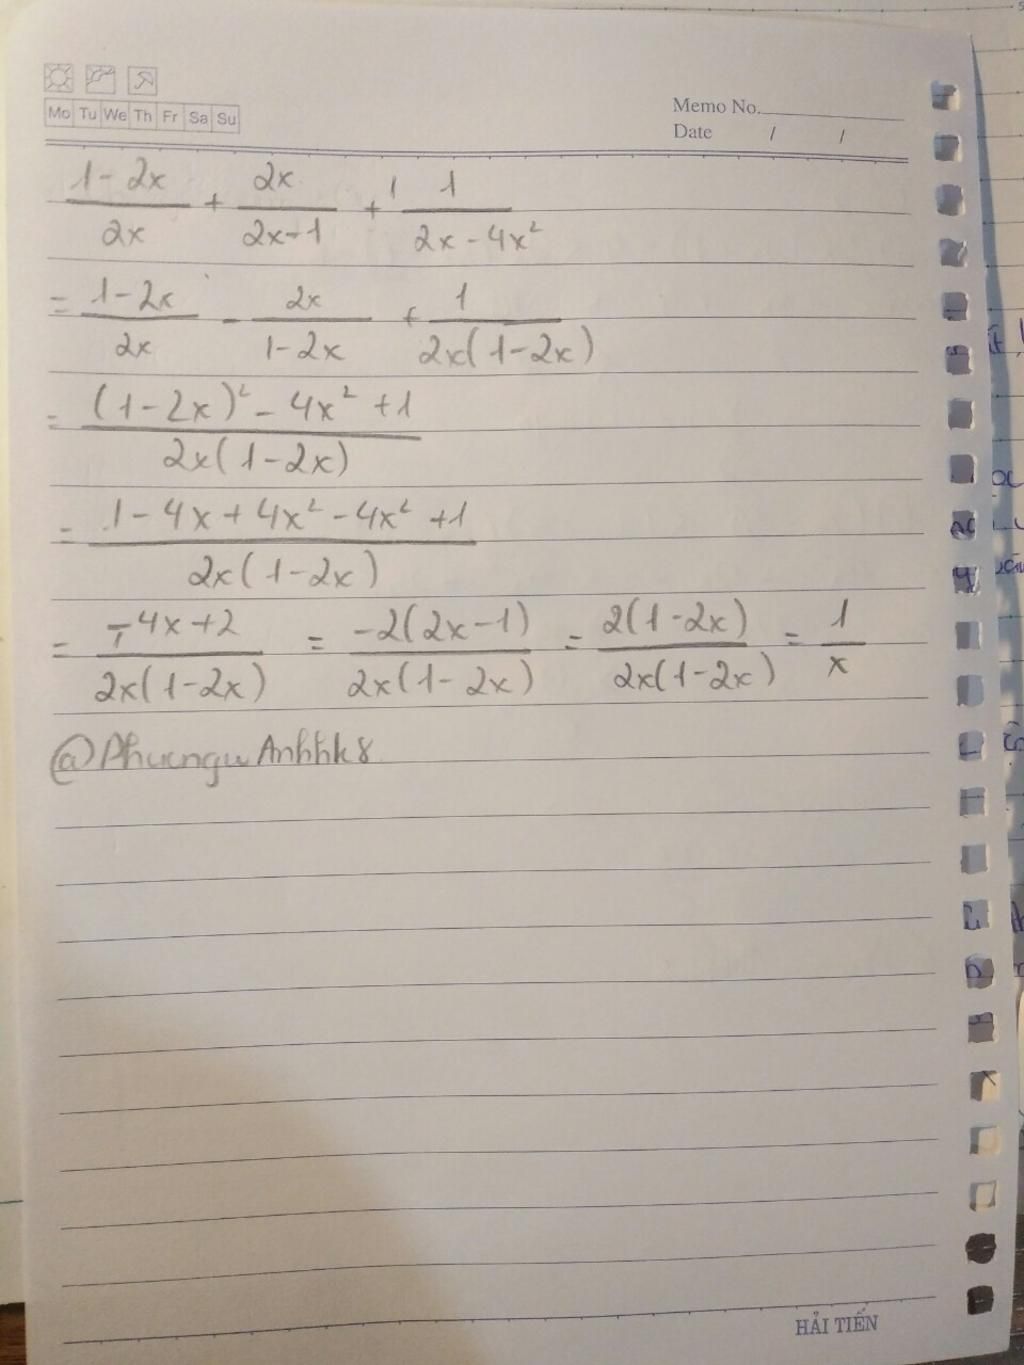 Mo Tu We Th Fr Sa Su
Memo No.
Date / /
(1-2x)/(2x) + (2x)/(2x-1) + 1/(2x-4x²)
= (1-2x)/(2x) - (2x)/(1-2x) + 1/(2x(1-2x))
= ((1-2x)² - 4x² + 1)/(2x(1-2x))
= (1-4x+4x²-4x²+1)/(2x(1-2x))
= (-4x+2)/(2x(1-2x)) = (-2(2x-1))/(2x(1-2x)) = (2(1-2x))/(2x(1-2x)) = 1/x
HẢI TIẾN